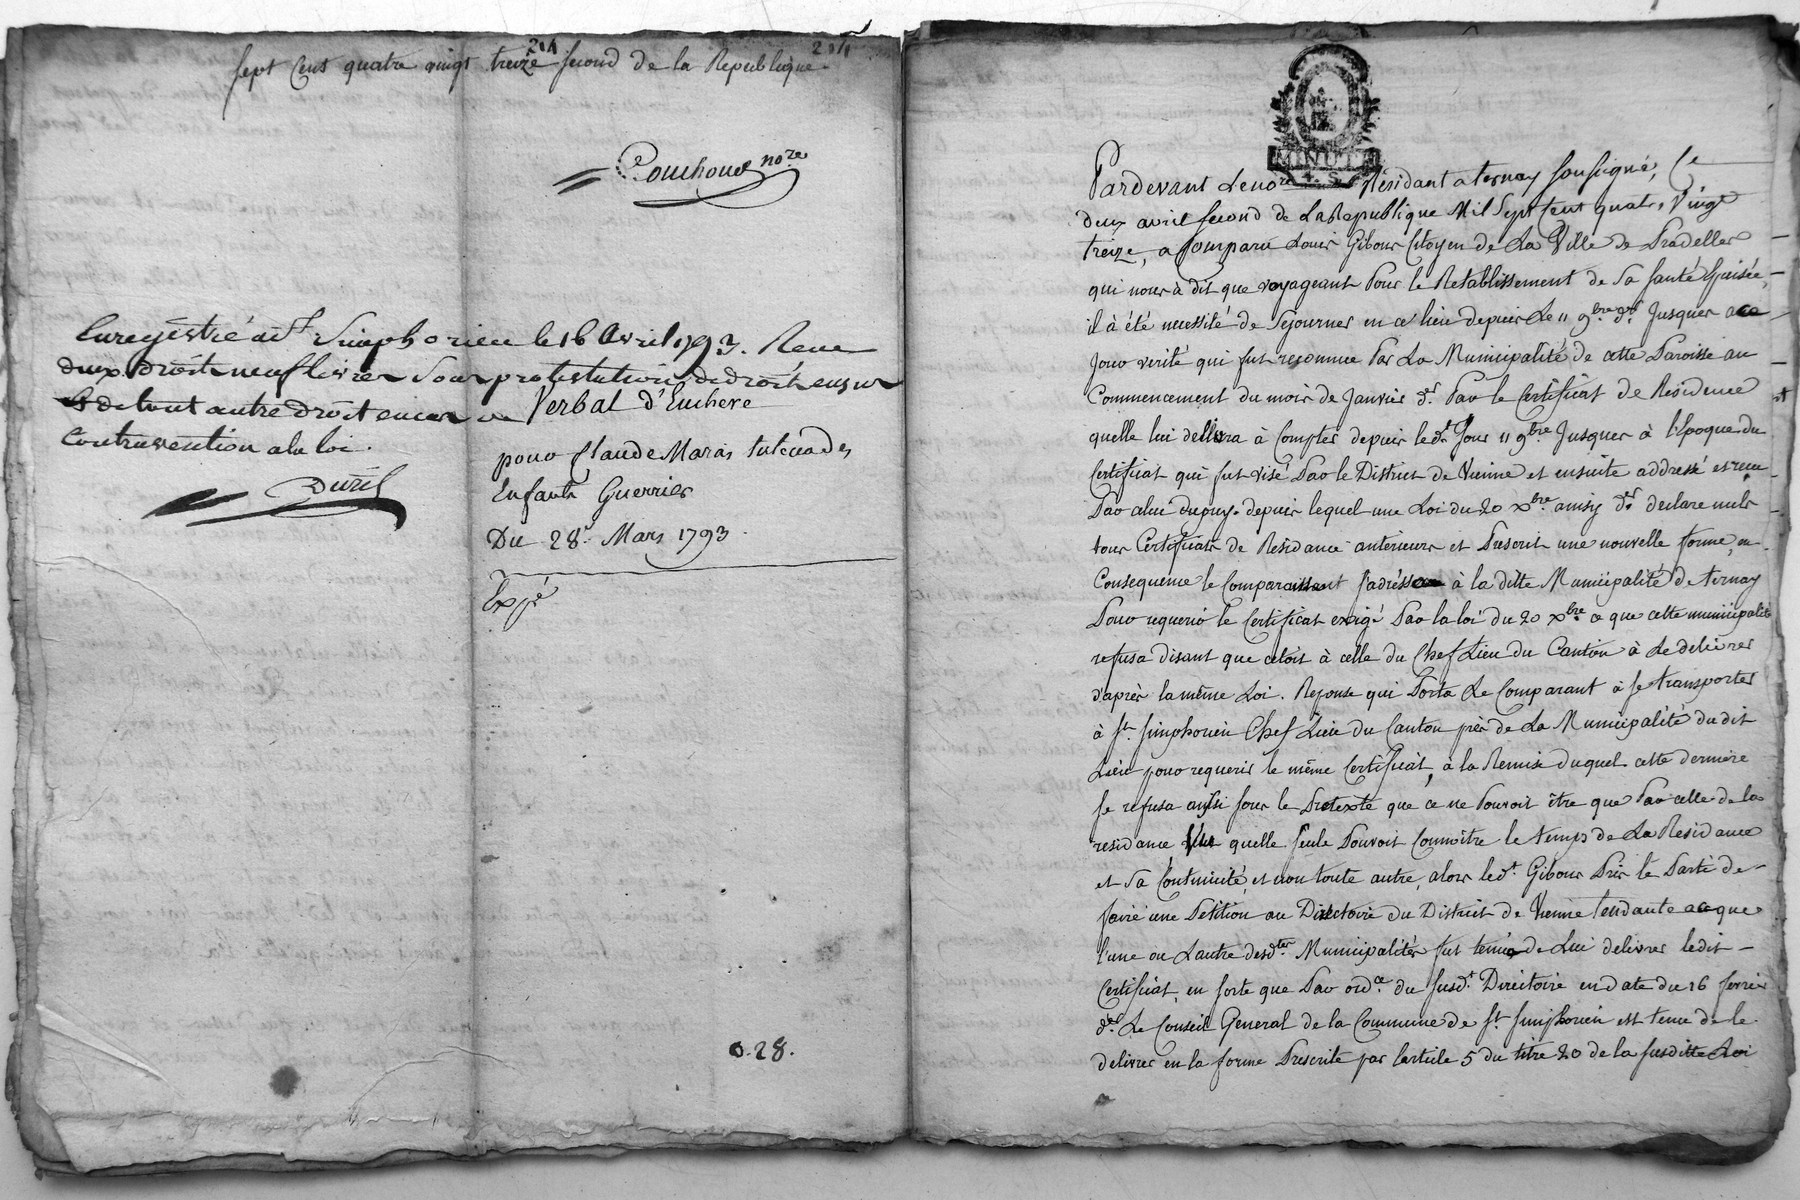 214
sept Cens quatre vingt treize second de la Republique.
Pouchoud nore
Enregistré a St Simphorien le 16 Avril 1793. Recu
deux droits neuf livres Sour protestation de droit en sus
& de tout autre droit en cas de
Contravention a la loi.
Duvil
Verbal d'Enchere
pour Claude Maras tuteur des
Enfants Guerrier
Du 28e. Mars 1793.
Expé
0.28.
MINUTE
4. S.
Pardevant Le nore Résidant a ternay soussigné, Ce
deux avril second de La Republique Mil Sept Cent quatre Vingt
treize, a Comparu Louis Gibous Citoyen de La Ville de Pradelles
qui nous à dit que voyageant Pour le Retablissement de sa santé Epuisée,
il à été necessité de Sejourner en ce lieu depuis Le 11 9bre der Jusques a ce
Jour verité qui fut reconnue Par La Municipalité de cette Paroisse au
Commencement du mois de Janvier dr. Par le Certificat de Residence
quelle lui dellivra à Compter depuis ledt Jour 11 9bre Jusques à l'Epoque du
Certificat qui fut visé Par le District de Vienne et ensuite addressé et recu
Par celui dupuy. depuis lequel une Loi du 20 Xbre aussy der declare nuls
tous Certificats de Residance anterieurs et Prescrit une nouvelle forme, en
Consequence le Comparaissant s'adressa à la ditte Municipalité de ternay
Pour requerir le Certificat exigé Par la loi du 20 Xbre ce que cette municipalité
refusa disant que cetoit à celle du Chef Lieu du Canton à Le delivrer
d'après la même Loi. Reponse qui Porta Le Comparant à se transporter
à St. Simphorien Chef Lieu du Canton près de La Municipalité du dit
Lieu pour requerir le même Certificat, à la Remise duquel cette derniere
se refusa aussi sous le Pretexte que ce ne Pouvoit être que Par celle de la
residance quelle seule Pouvoit Connoitre le temps de La Residance
et sa Continuité, et non toute autre, alors ledt. Gibous Pris le Parti de
faire une Petition au Directoire du District de Vienne tendante a ce que
l'une ou L'autre desdtes Municipalités fut tenue de Lui delivrer ledit
Certificat, en sorte que Par ordce du susdt. Directoire en date du 16 fevrier
der. Le Conseil General de la Commune de St Simphorien est tenu de le
delivrer en la forme Prescrite par l'article 5 du titre 20 de la susditte Loi